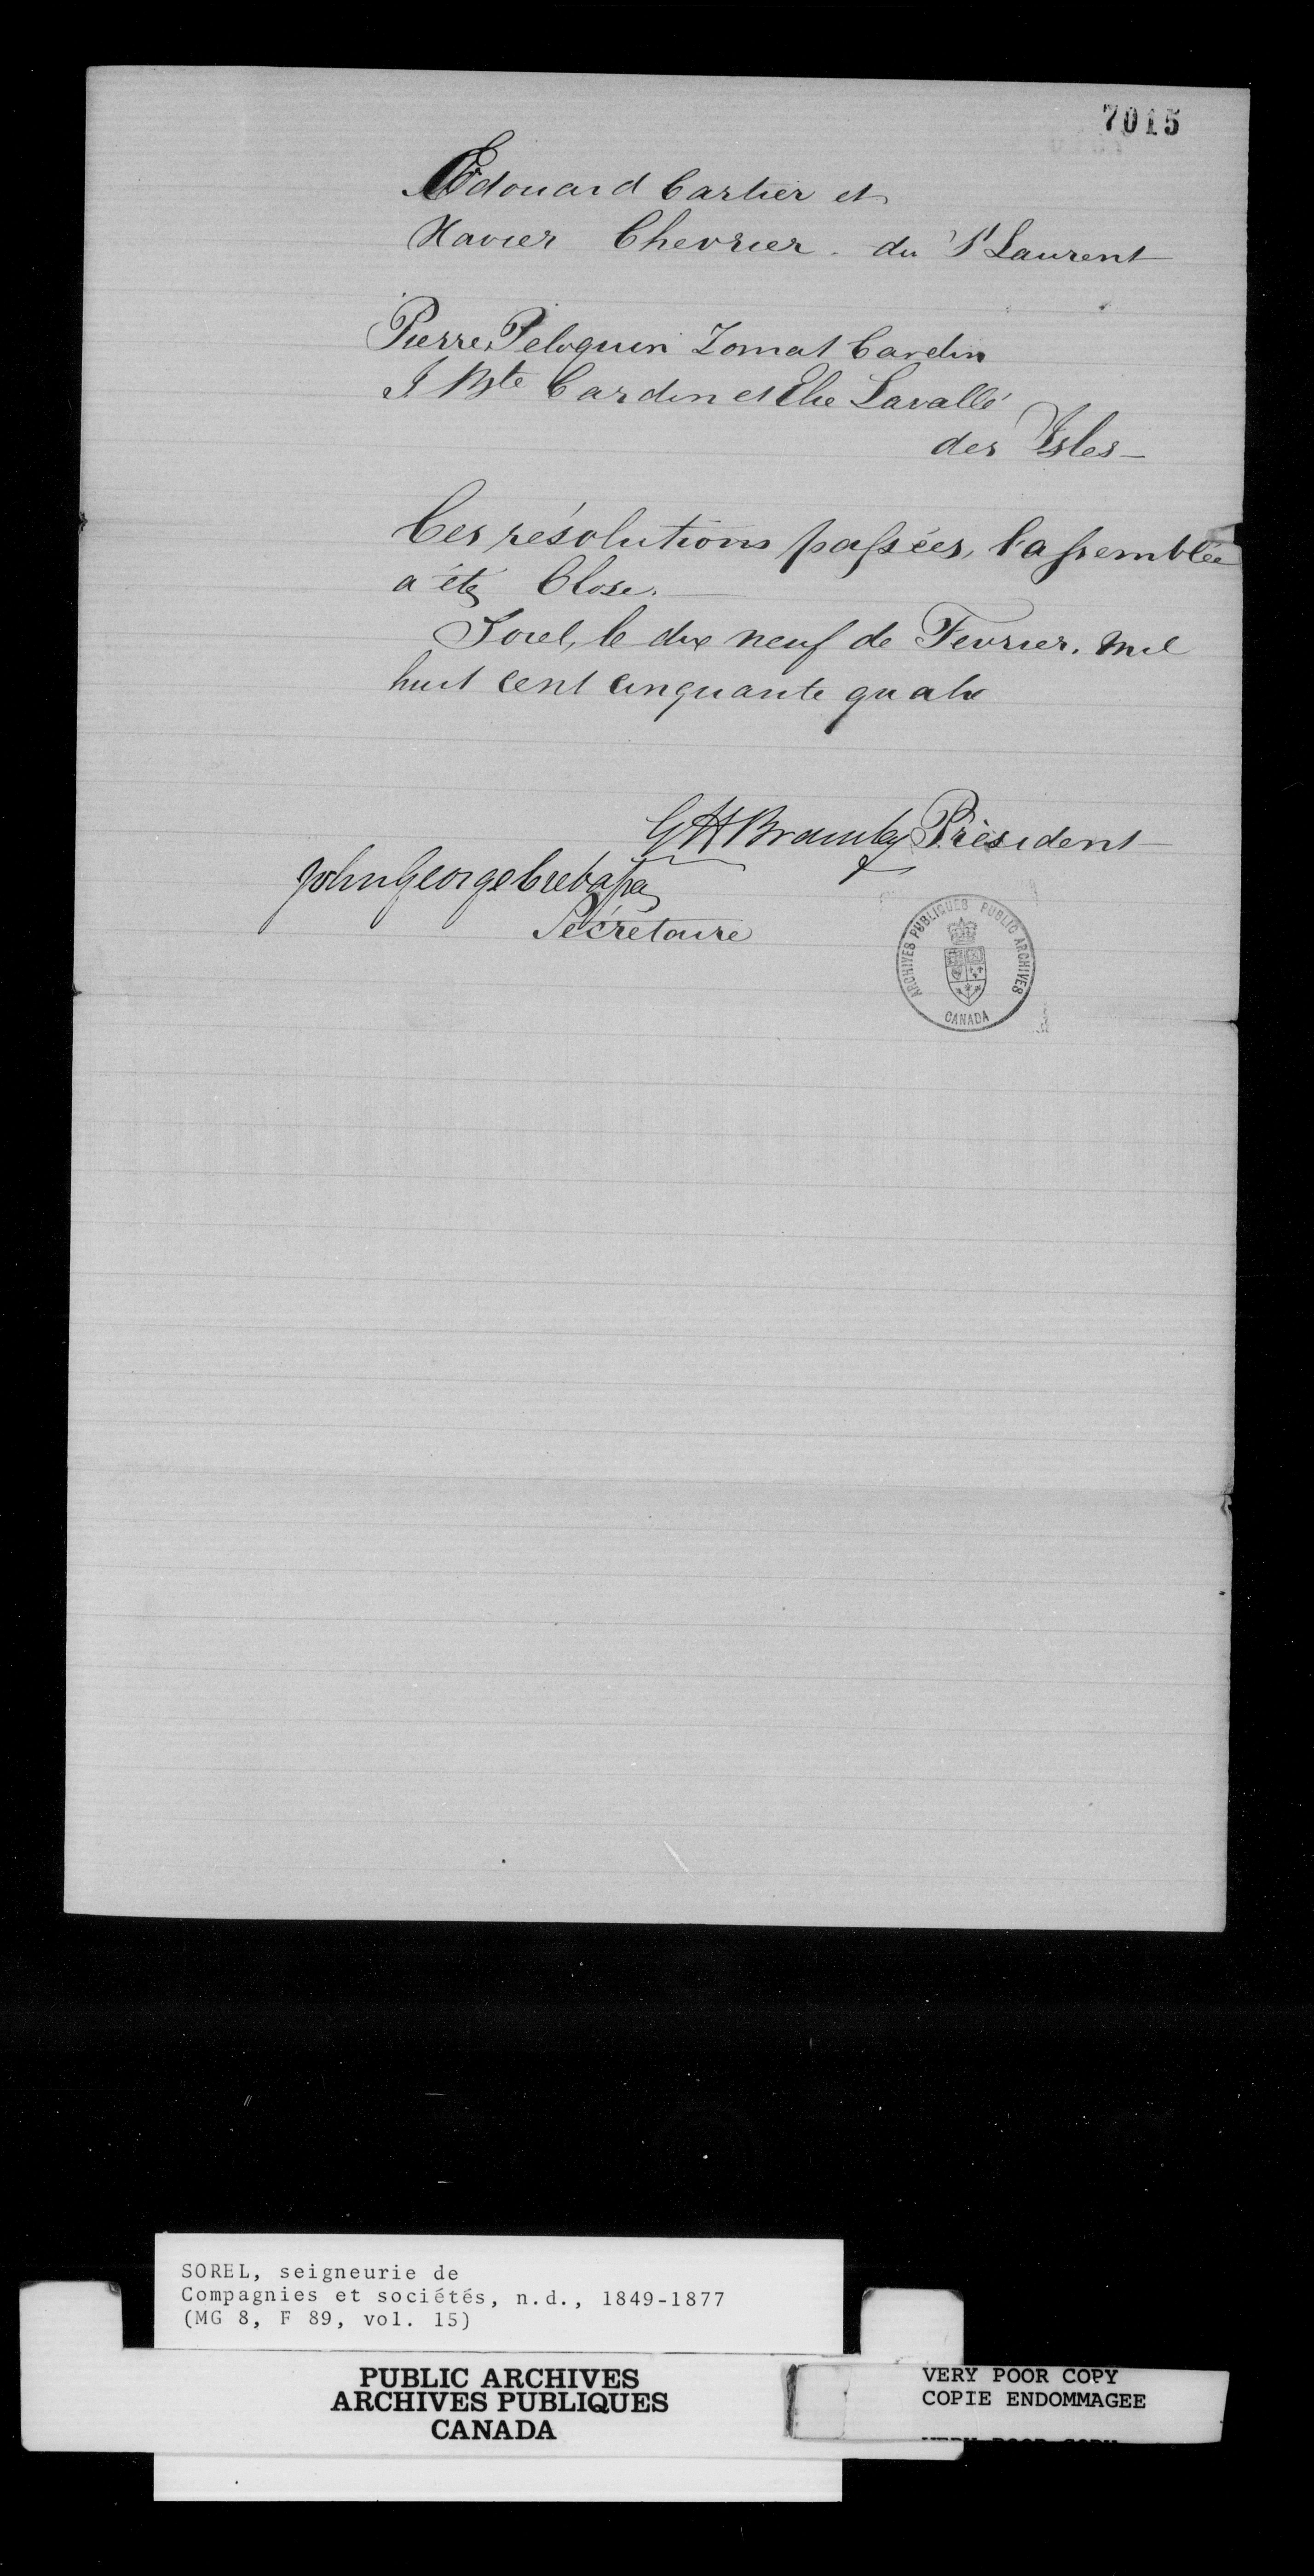 7015
Edouard Cartier et
Xavier Chevrier. du St Laurent
Pierre Peloquin Zomat Cardin
J Bte Cardin et Elie Lavallé
des Isles —
Ces résolutions passées, l'assemblée
a été Close. —
Sorel, le dix neuf de Fevrier. mil
huit cent cinquante quatre
GH Bramley Président
John George Crebassa
Sécretaire
ARCHIVES PUBLIQUES PUBLIC ARCHIVES
CANADA
SOREL, seigneurie de
Compagnies et sociétés, n.d., 1849-1877
(MG 8, F 89, vol. 15)
PUBLIC ARCHIVES
ARCHIVES PUBLIQUES
CANADA
VERY POOR COPY
COPIE ENDOMMAGEE
VERY POOR COPY